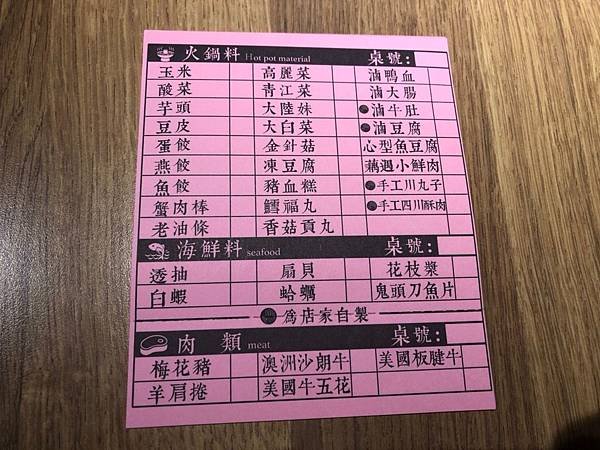 火鍋料 Hot pot material 桌號:
玉米 高麗菜 滷鴨血
酸菜 青江菜 滷大腸
芋頭 大陸妹 滷牛肚
豆皮 大白菜 滷豆腐
蛋餃 金針菇 心型魚豆腐
燕餃 凍豆腐 藕遇小鮮肉
魚餃 豬血糕 手工川丸子
蟹肉棒 鱈福丸 手工四川酥肉
老油條 香菇貢丸
海鮮料 seafood 桌號:
透抽 扇貝 花枝漿
白蝦 蛤蠣 鬼頭刀魚片
為店家自製
肉類 meat 桌號:
梅花豬 澳洲沙朗牛 美國板腱牛
羊肩捲 美國牛五花